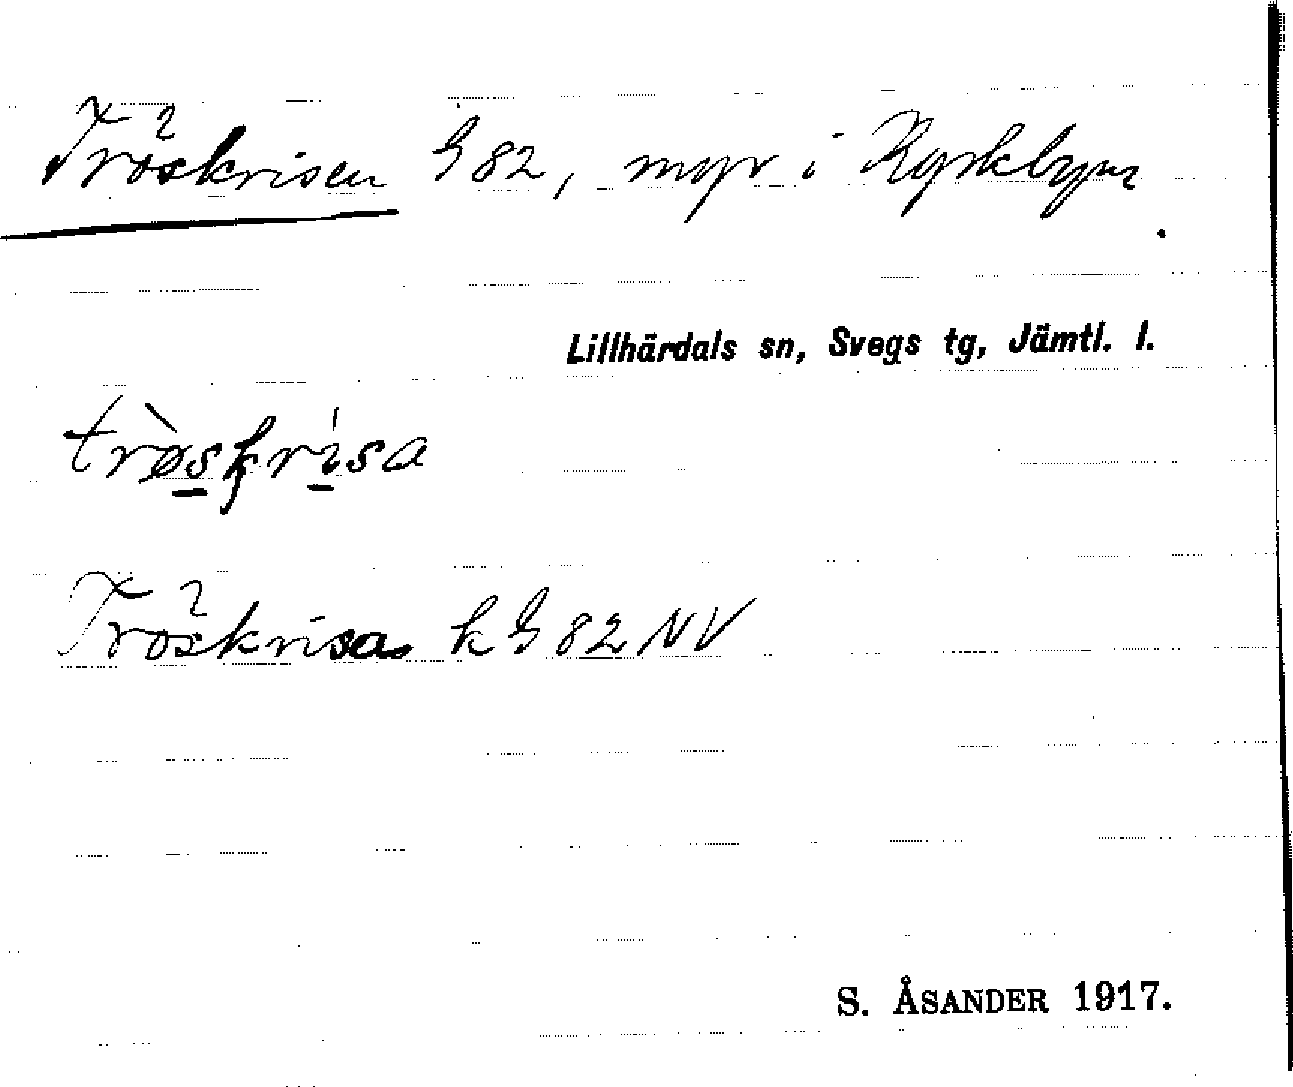 Tröskrisen G 82, myr i Kyrkbyn.
Lillhärdals sn, Svegs tg, Jämtl. l.
trøskrisa
Tröskrisa k G 82 NV
S. ÅSANDER 1917.